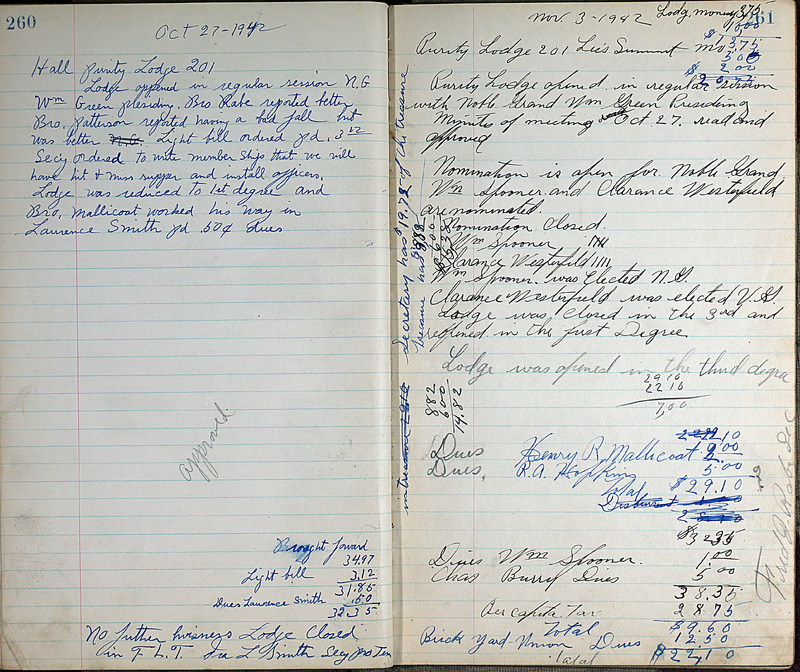 260
Oct 27-1942
Hall Purity Lodge 201
Lodge opened in regular session N.G
Wm Green presiding. Bro Rabe reported better
Bro. Patterson reported having a bad fall but
was better N.G. Light bill ordered pd. 3.12
Secy ordered to write member ships that we will
have hit & miss supper and install officers.
Lodge was reduced to 1st degree and
Bro. Mallicoat worked his way in
Laurence Smith pd .50¢ dues
approved
Brought forward
34.97
Light bill 3.12
31.85
Dues Laurence Smith .50
32.35
No futher buisness Lodge Closed
in F. L. T. Ira L Smith Secy pro Tem
261
Nov. 3-1942
Lodg, money 3.75
10.00
Purity Lodge 201 Lees Summit Mo
13.75
Purity Lodge opened in regular session
with Noble Grand Wm Green Presiding
Minutes of meeting Oct 27. read and
approved
Nomination is open for Noble Grand
Wm Spooner and Clarance Westerfield
are nominated.
Nomination Closed.
Wm Spooner IIII
Clarance Westerfield IIII
Wm Spooner was Elected N.G.
Clarance Westerfield was elected V.G.
Lodge was closed in the 3rd and
reopened in the first Degree
Lodge was opened in the third degree
29 10
22 10
7,00
secretary has 19.73 of the treasure
treasure has 882
882
600
14.82
Dues Henry R. Mallicoat 2.00
Dues, R.A. Hopkins 5.00
Total $29.10
Disbursment
$32 35
Dues Wm Spooner. 1.00
Chas Burrel Dues 5.00
38.35
Per capita Tax 28 75
Total $9.60
Brick Yard Union Dues 12 50
Total $22,10